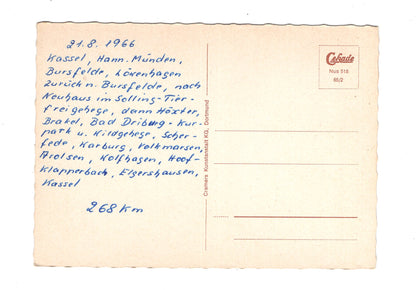 21.8.1966
Kassel, Hann. Münden,
Bursfelde, Löwenhagen
zurück n. Bursfelde, nach
Neuhaus im Solling-Tier-
freigehege, dann Höxter,
Brakel, Bad Driburg-Kur-
park u. Wildgehege, Scher-
fede, Warburg, Volkmarsen,
Arolsen, Wolfhagen, Hoof-
Klapperbach, Elgershausen,
Kassel
268 km
Cramers Kunstanstalt KG, Dortmund
Cekade
Nus 518
65/2